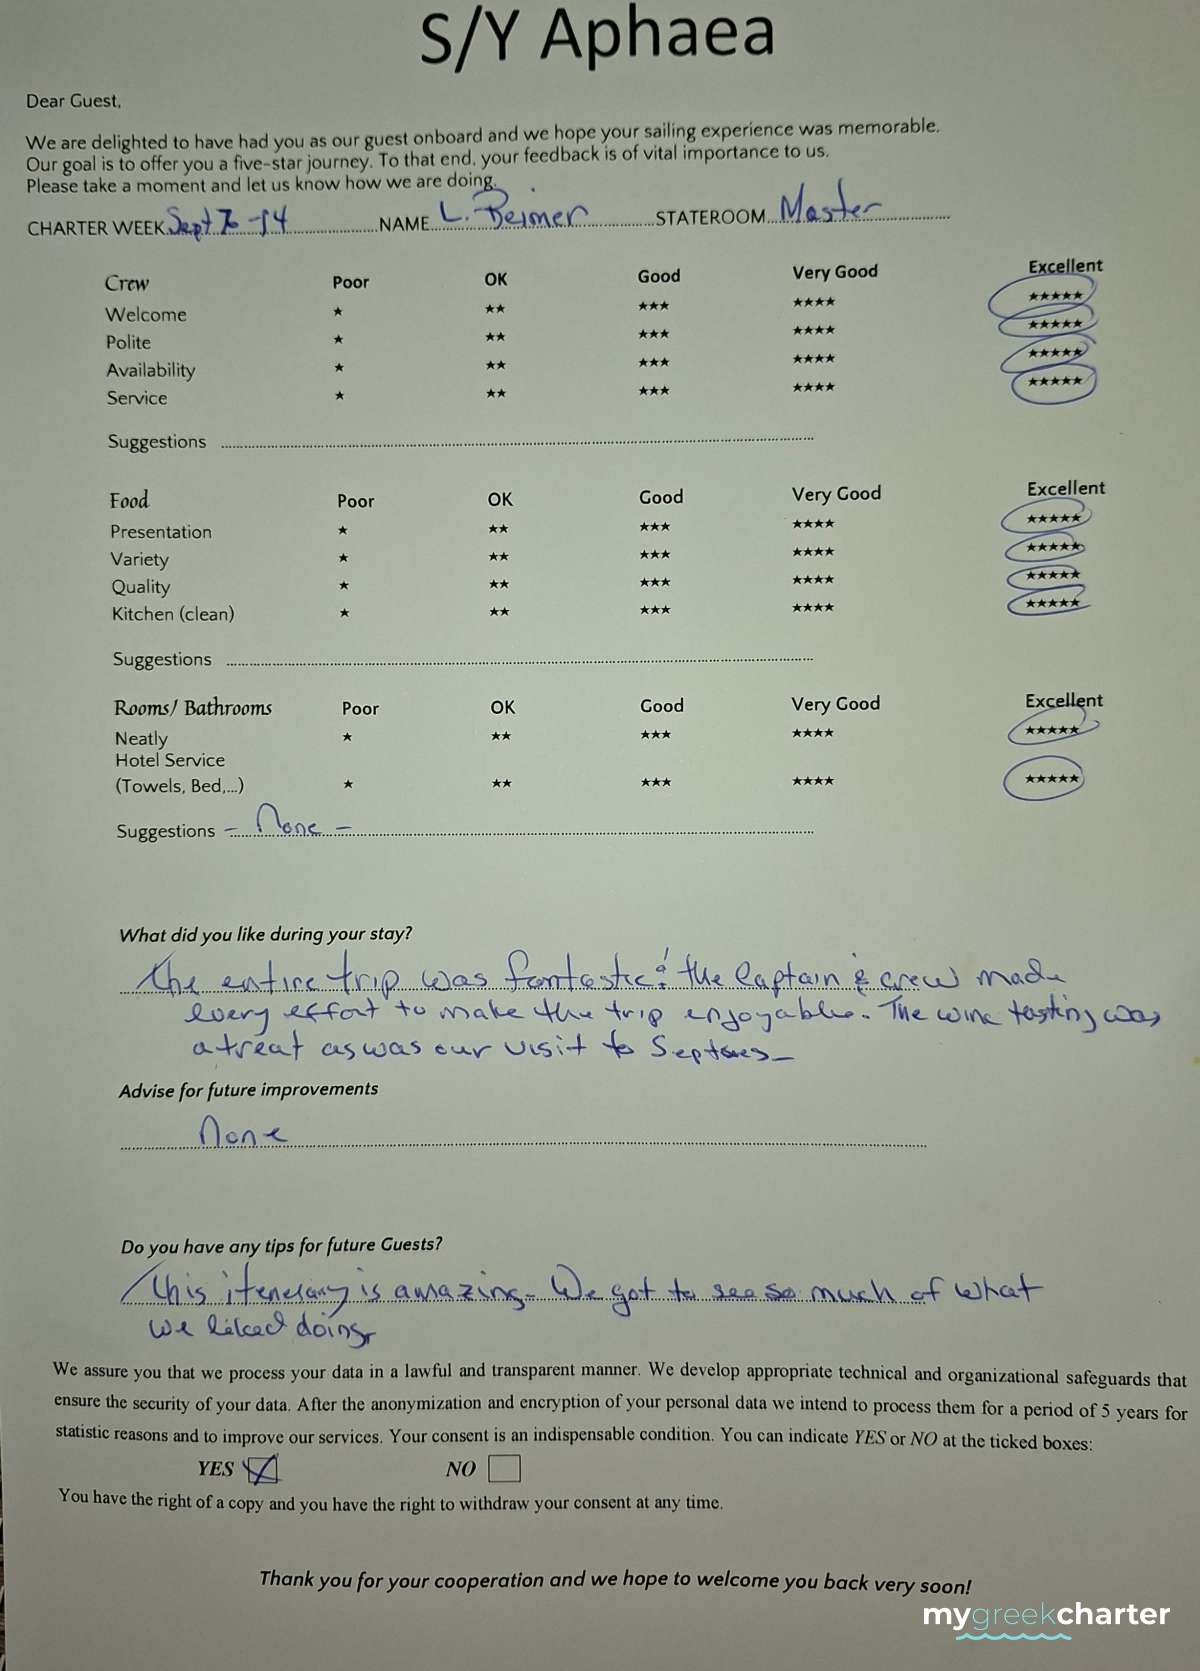 S/Y Aphaea
Dear Guest,
We are delighted to have had you as our guest onboard and we hope your sailing experience was memorable.
Our goal is to offer you a five-star journey. To that end, your feedback is of vital importance to us.
Please take a moment and let us know how we are doing.
CHARTER WEEK Sept 7 -14 NAME L. Beimer STATEROOM Master
Crew Poor OK Good Very Good Excellent
Welcome ★ ★★ ★★★ ★★★★ ★★★★★
Polite ★ ★★ ★★★ ★★★★ ★★★★★
Availability ★ ★★ ★★★ ★★★★ ★★★★★
Service ★ ★★ ★★★ ★★★★ ★★★★★
Suggestions
Food Poor OK Good Very Good Excellent
Presentation ★ ★★ ★★★ ★★★★ ★★★★★
Variety ★ ★★ ★★★ ★★★★ ★★★★★
Quality ★ ★★ ★★★ ★★★★ ★★★★★
Kitchen (clean) ★ ★★ ★★★ ★★★★ ★★★★★
Suggestions
Rooms/ Bathrooms Poor OK Good Very Good Excellent
Neatly ★ ★★ ★★★ ★★★★ ★★★★★
Hotel Service
(Towels, Bed,...) ★ ★★ ★★★ ★★★★ ★★★★★
Suggestions - None -
What did you like during your stay?
The entire trip was fantastic! The Captain & crew made
every effort to make the trip enjoyable. The wine tasting was
a treat as was our visit to
Advise for future improvements
None
Do you have any tips for future Guests?
This itenerary is amazing. We got to see so much of what
we liked doing.
We assure you that we process your data in a lawful and transparent manner. We develop appropriate technical and organizational safeguards that
ensure the security of your data. After the anonymization and encryption of your personal data we intend to process them for a period of 5 years for
statistic reasons and to improve our services. Your consent is an indispensable condition. You can indicate YES or NO at the ticked boxes:
YES NO
You have the right of a copy and you have the right to withdraw your consent at any time.
Thank you for your cooperation and we hope to welcome you back very soon!
mygreekcharter